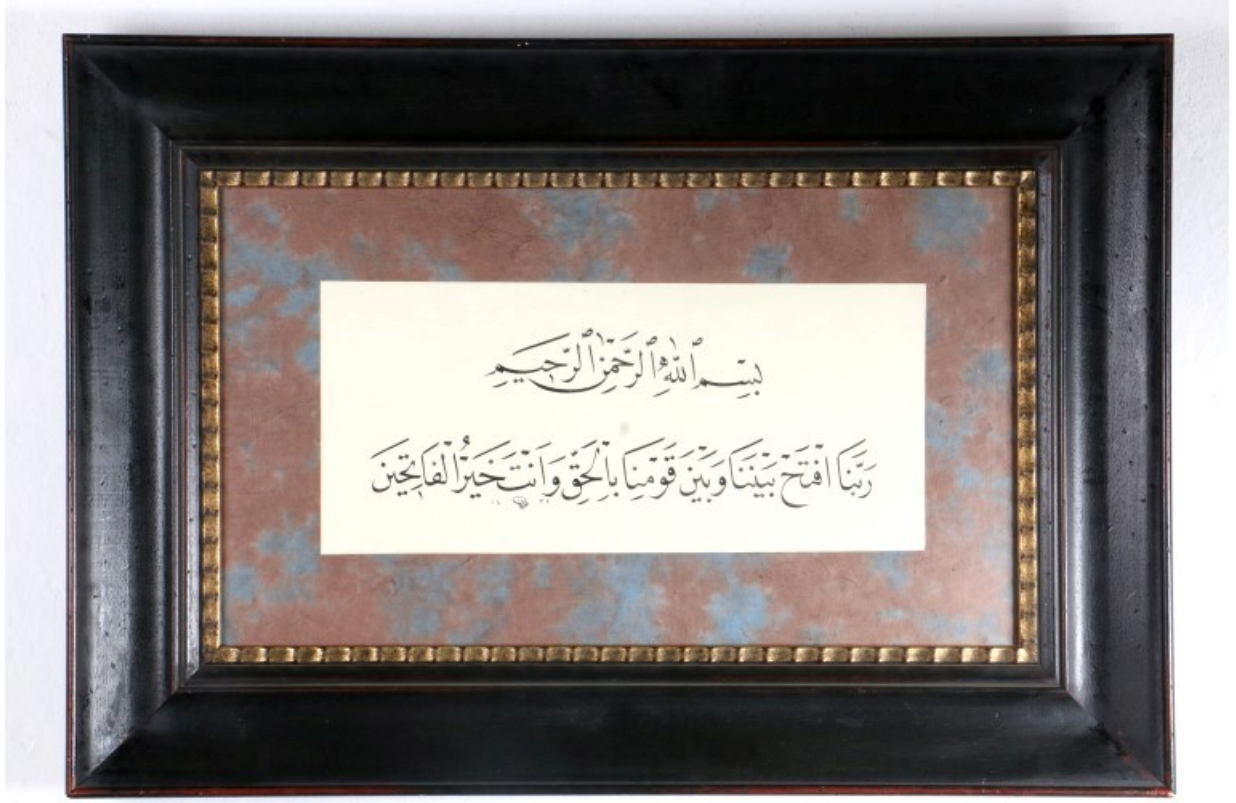 بِسْمِ ٱللّٰهِ ٱلرَّحْمٰنِ ٱلرَّحِيمِ
رَبَّنَا افْتَحْ بَيْنَنَا وَبَيْنَ قَوْمِنَا بِالْحَقِّ وَاَنْتَ خَيْرُ الْفَاتِحِينَ